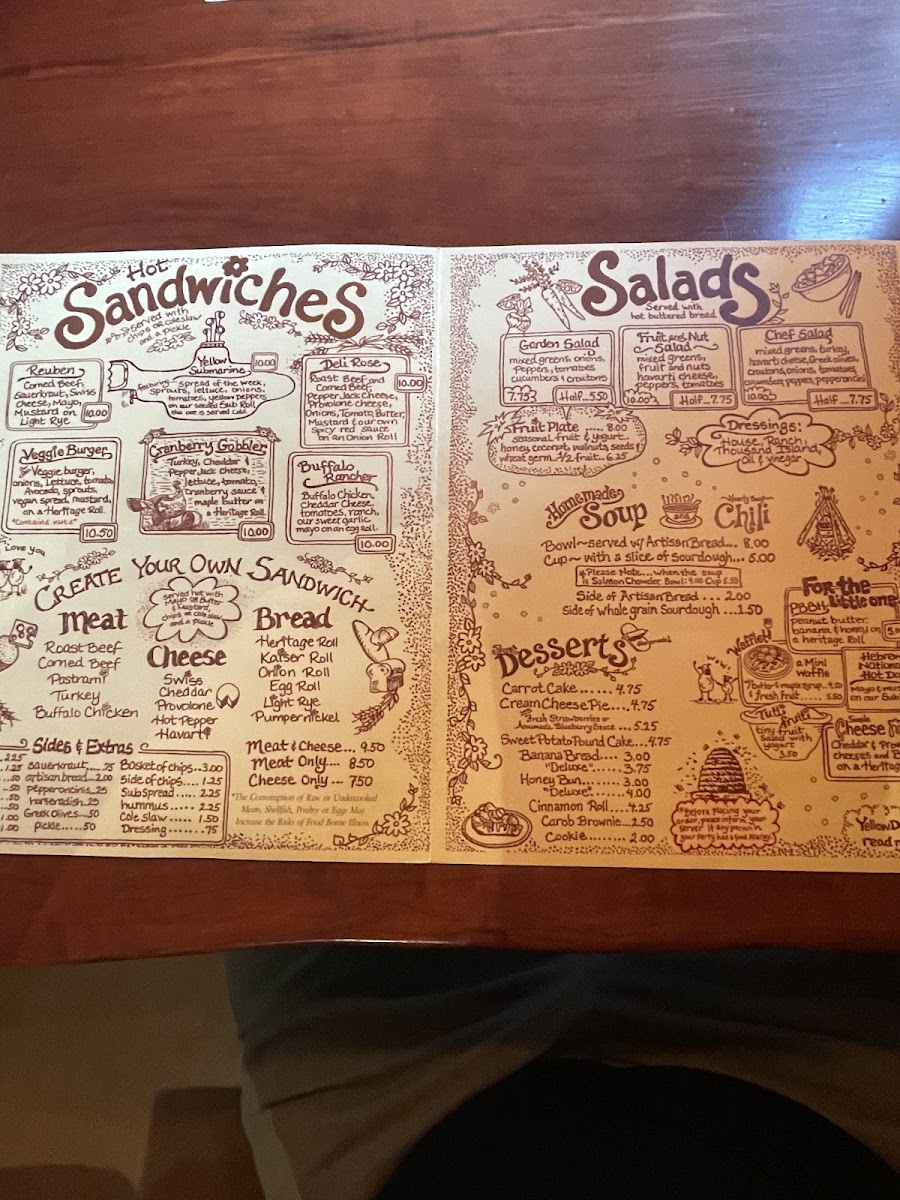 Hot
Sandwiches
Served with
chips OR coleslaw
and a Pickle
Reuben
Corned Beef,
Sauerkraut, Swiss
Cheese, Mayo,
Mustard on
Light Rye
10.00
Yellow
Submarine
10.00
featuring spread of the week,
sprouts, lettuce, onions,
tomatoes, yellow peppers
on our seeded Sub Roll
she one is served cold.
Deli Rose
Roast Beef and
Corned Beef,
Pepper Jack Cheese,
Provolone cheese,
Onions, Tomato, Butter,
Mustard & our own
spicy red sauce
on an Onion Roll
10.00
Veggie Burger
Veggie burger,
onions, Lettuce, tomato,
Avocado, sprouts,
vegan spread, mustard,
on a Heritage Roll.
*contains nuts*
10.50
Cranberry Gobbler
Turkey, Cheddar
Pepper Jack cheese,
lettuce, tomato,
cranberry sauce &
maple butter on
a Heritage Roll.
10.00
Buffalo
Rancher
Buffalo Chicken,
Cheddar Cheese,
tomatoes, ranch,
our sweet garlic
mayo on an egg roll.
10.00
LOVE YOU
CREATE YOUR OWN SANDWICH
served hot with
MAYO OR Butter
& Mustard,
chips or coleslaw
and a pickle
Meat
Roast Beef
Corned Beef
Pastrami
Turkey
Buffalo Chicken
Cheese
Swiss
Cheddar
Provolone
Hot Pepper
Havarti
Bread
Heritage Roll
Kaiser Roll
Onion Roll
Egg Roll
Light Rye
Pumpernickel
Sides & Extras
2.25
1.25
.50
.50
.50
1.00
1.00
sauerkraut .75
artisan bread...2.00
pepperoncinis .25
horseradish .25
Greek Olives .50
pickle .50
Basket of chips...3.00
side of chips.... 1.25
Sub Spread..... 2.25
hummus...... 2.25
Cole slaw..... 1.50
Dressing..... .75
Meat & Cheese... 9.50
Meat Only.... 8.50
Cheese Only... 7.50
*The Consumption of Raw or Undercooked
Meats, Shellfish, Poultry or Eggs May
Increase the Risks of Food Borne Illness.
Salads
Served with
hot buttered bread
Garden Salad
mixed greens, onions,
Peppers, tomatoes
cucumbers & croutons
7.75
Half...5.50
Fruit and Nut
Salad
mixed greens,
fruit and nuts
havarti cheese,
peppers, tomatoes
10.00
Half...7.75
Chef Salad
mixed greens, turkey,
havarti cheese, Greek olives,
croutons, onions, tomatoes
cucumbers, peppers, pepperoncini
10.00
Half...7.75
Fruit Plate..... 8.00
seasonal fruit & yogurt
honey, coconut, walnuts, seeds &
wheat germ. 1/2 fruit.. 6.25
Dressings:
House, Ranch,
Thousand Island,
Oil & Vinegar
Homemade
Soup
and
Chili
Bowl~served w/ Artisan Bread... 8.00
Cup~with a slice of Sourdough.... 5.00
*Please Note.....when the soup
is Salmon Chowder Bowl: 9.00 Cup 5.50
Side of Artisan Bread . . . 2.00
Side of whole grain Sourdough ...1.50
Desserts
Carrot Cake....... 4.75
Cream Cheese Pie....4.75
fresh Strawberries or
Blueberry Sauce... 5.25
Sweet Potato Pound Cake...4.75
Banana Bread.... 3.00
"Deluxe"..... 3.75
Honey Bun..... 3.00
"Deluxe"...... 4.00
Cinnamon Roll....4.25
Carob Brownie...2.50
Cookie........ 2.00
For the
little one
PBBH
peanut butter,
banana & honey on
a heritage Roll
Waffle!
a Mini
waffle
butter & maple syrup
& fresh fruit..... 5.50
Hebrew
National
Hot Do
Mayo & must
on our Bun
Tutti fruiti
tiny fruit
salad with
yogurt
3.50
Cheese
Cheddar & Prov
cheeses and B
on a Heritage
Before placing your
order, please inform your
server if any person in
your party has a food allergy.
Yellow D
read m